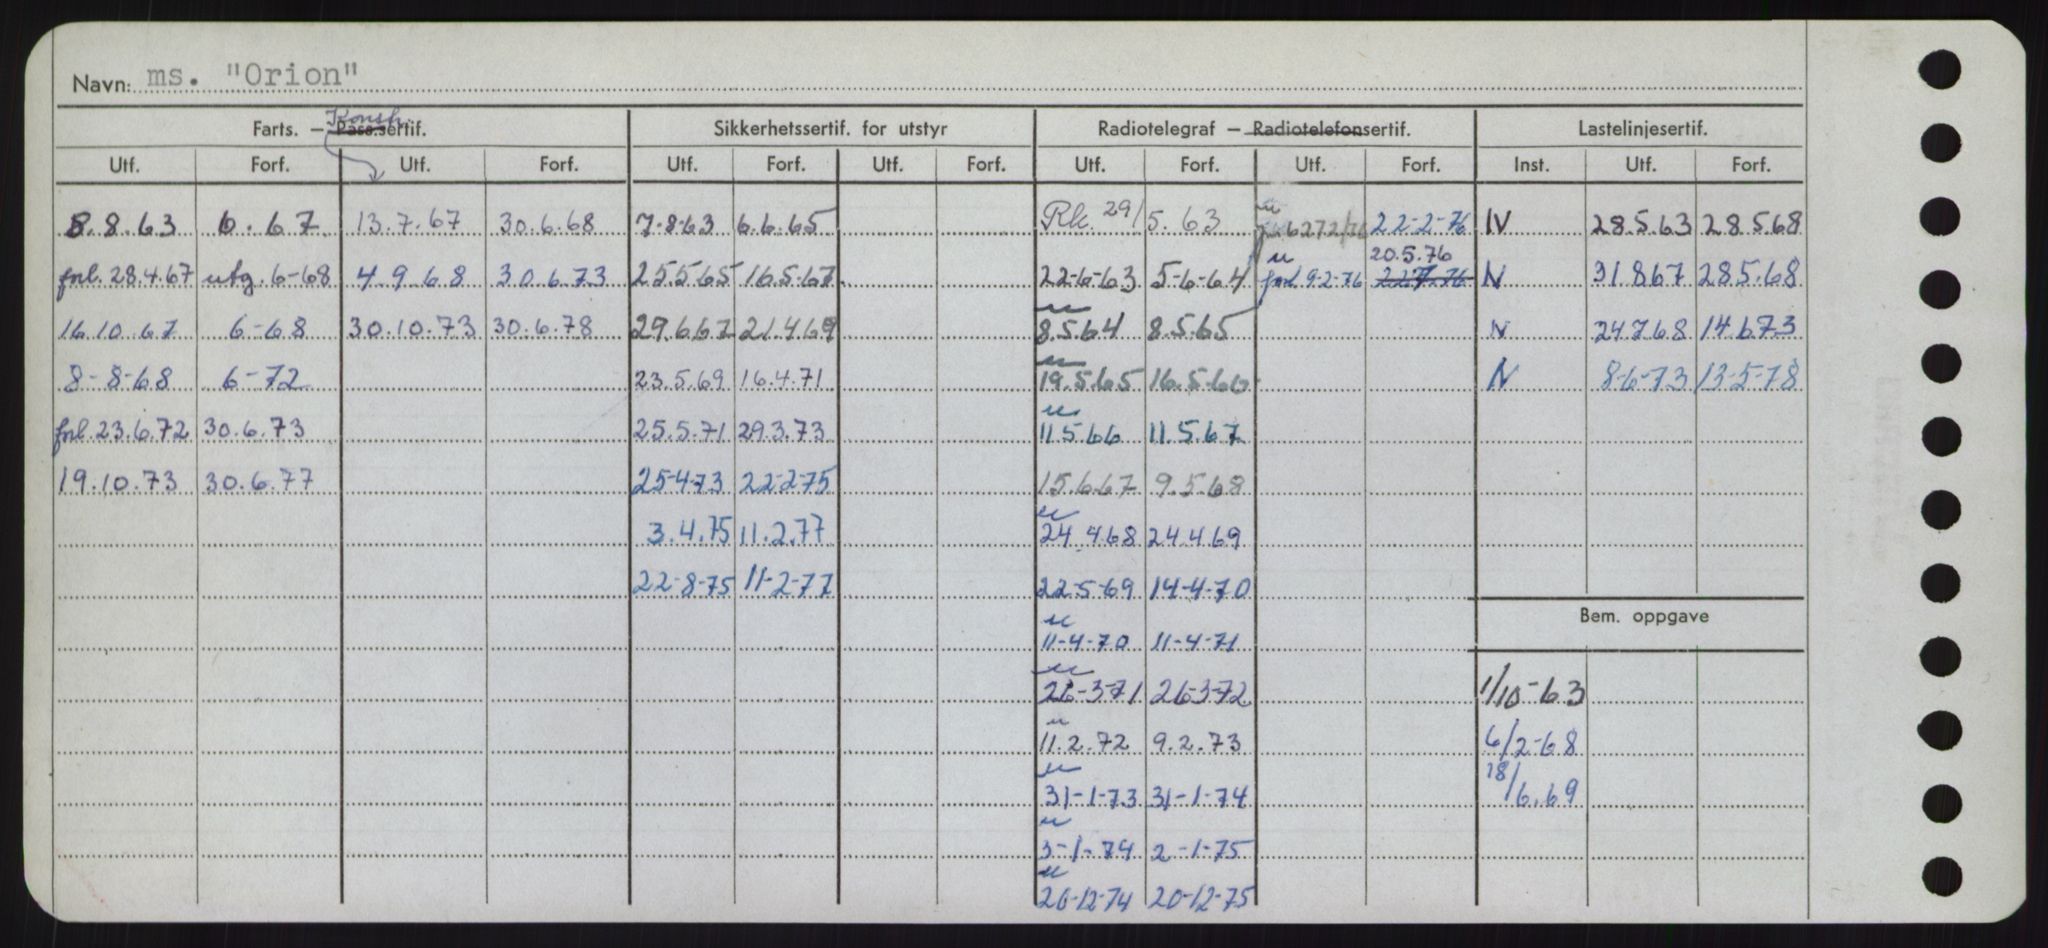 Navn: ms. "Orion"
Konstr.
Farts. – Pass.sertif. Sikkerhetssertif. for utstyr Radiotelegraf – Radiotelefonsertif. Lastelinjesertif.
Utf. Forf. Utf. Forf. Utf. Forf. Utf. Forf. Utf. Forf. Utf. Forf. Inst. Utf. Forf.
8.8.63 6.67 13.7.67 30.6.68 7.8.63 6.6.65 Rk. 29/5.63 22-2-76 N 28.5.63 28.5.68
20.5.76
forl. 28.4.67 utg. 6-68 4.9.68 30.6.73 25.5.65 16.5.67 22-6-63 5-6-64 forl 9-2-76 N 31.8.67 28.5.68
16.10.67 6-68 30.10.73 30.6.78 29.6.67 21.4.69 8.5.64 8.5.65 N 24.7.68 14.6.73
8-8-68 6-72 23.5.69 16.4.71 19.5.65 16.5.66 N 8-6-73 13-5-78
forl. 23.6.72 30.6.73 25.5.71 29.3.73 11.5.66 11.5.67
19.10.73 30.6.77 25-4-73 22-2-75 15.6.67 9.5.68
3.4.75 11.2.77 24.4.68 24.4.69
22-8-75 11-2-77 22-5-69 14-4-70
Bem. oppgave
11-4-70 11-4-71
26-3-71 26-3-72 1/10-63
11.2.72 9.2.73 6/2-68
31-1-73 31-1-74 18/6.69
3-1-74 2-1-75
20-12-74 20-12-75